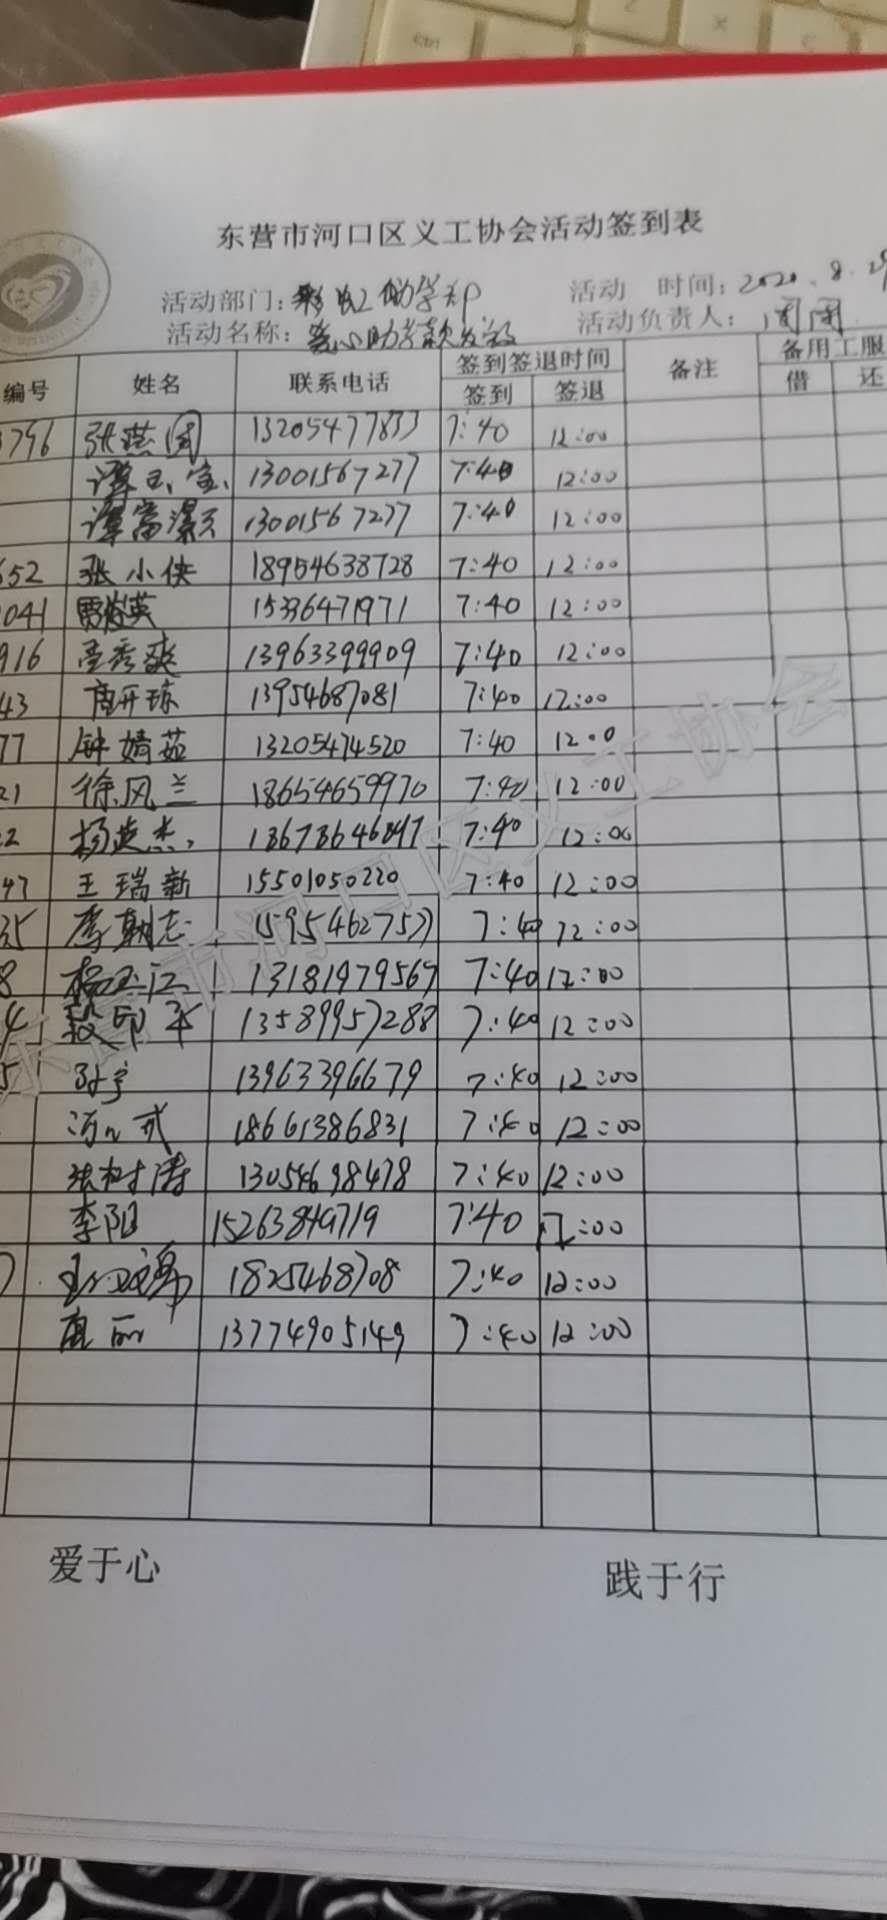 Ctrl
东营市河口区义工协会活动签到表
活动部门：彩虹助学部 活动 时间：2020.8.29
活动名称：爱心助学款发放 活动负责人：闫闫
编号 姓名 联系电话 签到签退时间 备注 备用工服
签到 签退 借 还
3796 张燕图 13205477833 7:40 12:00
谭玉宝 13001567277 7:40 12:00
谭富灏 13001567277 7:40 12:00
652 张小侠 18954638728 7:40 12:00
041 贾发英 15336471971 7:40 12:00
916 秀爽 13963399909 7:40 12:00
43 唐开琼 13954687081 7:40 12:00
77 钟婧茹 13205474520 7:40 12:00
21 徐风兰 18654659970 7:40 12:00
22 杨英杰 13673646847 7:40 12:00
47 王瑞新 15501050220 7:40 12:00
35 李朝志 15954627577 7:40 12:00
8 杨玉江 13181979567 7:40 12:00
4 段印军 13589957288 7:40 12:00
5 孙宇 13963396679 7:40 12:00
18661386831 7:40 12:00
张树涛 13054698478 7:40 12:00
李阳 15263849719 7:40 12:00
1825468708 7:40 12:00
唐丽 13774905149 7:40 12:00
爱于心 践于行
东营市河口区义工协会